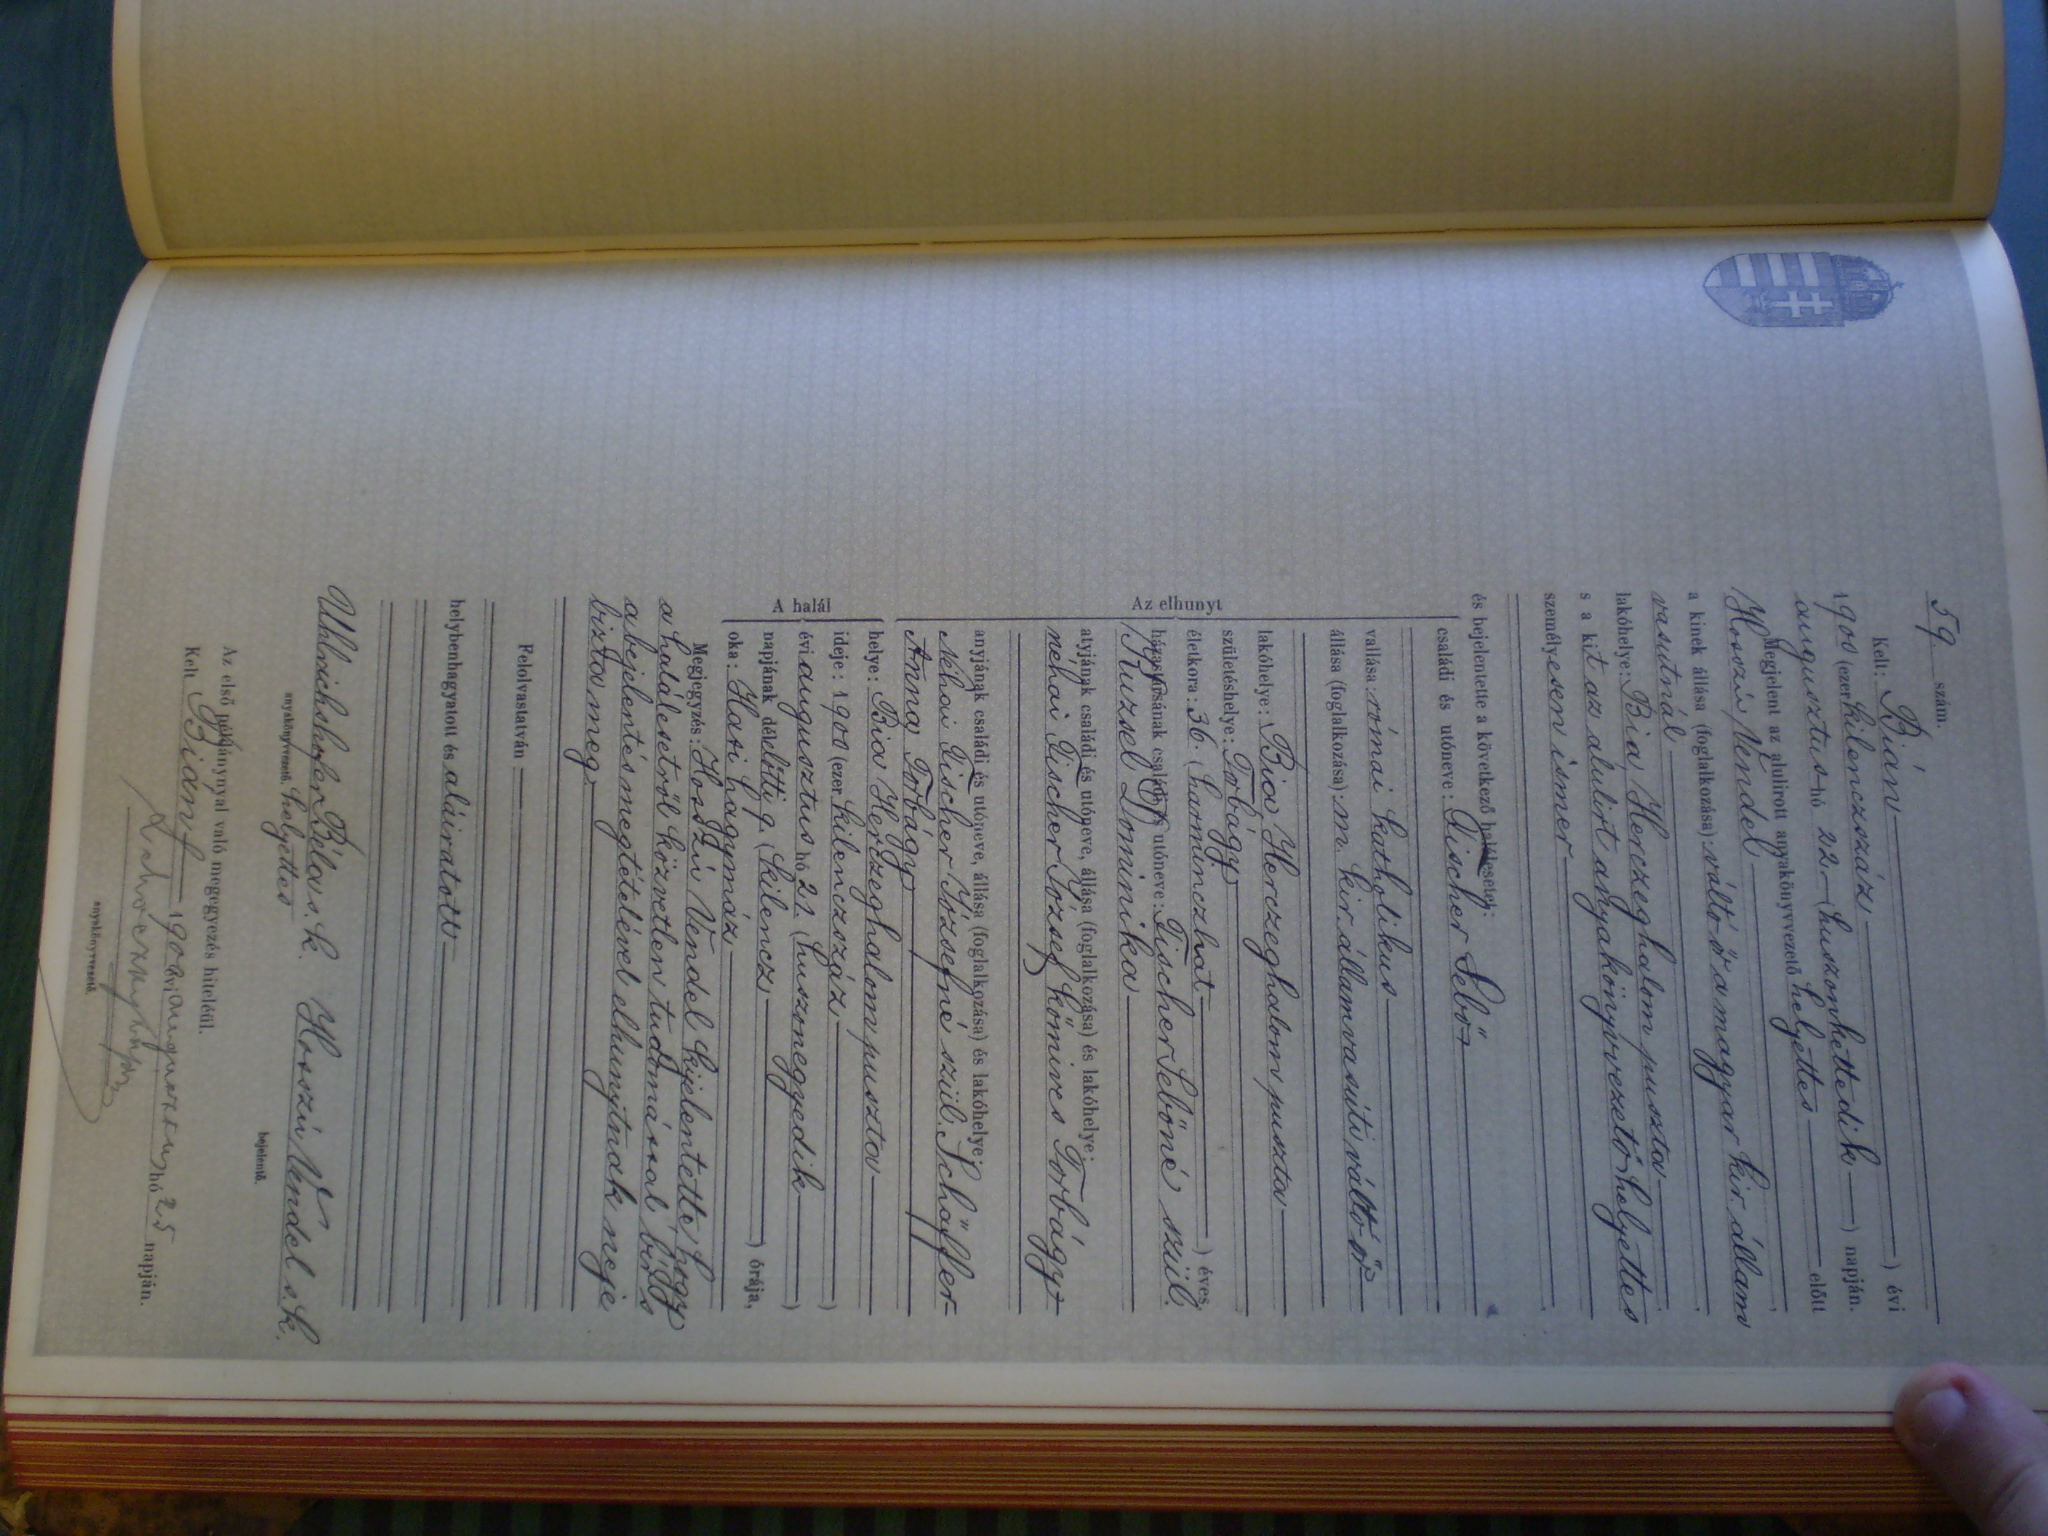 59 szám.
Kelt: Bián
1900 (ezer kilenczszáz) évi
augusztus hó 22 (huszonkettedik) napján.
Megjelent az alulirott anyakönyvvezető helyettes előtt
Hosszú Vendel
a kinek állása (foglalkozása): váltó őr a magyar kir állam
vasutnál
lakóhelye: Bia Herczeghalom puszta
s a kit az alulirt anyakönyvvezető helyettes
személyesen ismer
és bejelentette a következő halálesetet:
Az elhunyt
családi és utóneve: Discher Sebő
vallása: római katholikus
állása (foglalkozása): m. kir. államvasúti váltó őr
lakóhelye: Bia, Herczeghalom puszta
születéshelye: Torbágy
életkora: 36. (harminczhat) éves
házastársának családi és utóneve: Discher Sebőné szül.
Kuzsel Dominika
atyjának családi és utóneve, állása (foglalkozása) és lakóhelye:
néhai Discher József kőmives Torbágy
anyjának családi és utóneve, állása (foglalkozása) és lakóhelye:
Néhai Discher Józsefné szül. Schäffer
Anna, Torbágy
A halál
helye: Bia Herczeghalom puszta
ideje: 1900 (ezer kilenczszáz)
évi augusztus hó 21. (huszonegyedik)
napjának délelőtti 9. (kilencz) órája,
oka: Hasi hagymáz
Megjegyzés: Hosszú Vendel kijelentette, hogy
a halálesetről közvetlen tudomással bír s
a bejelentés megtételével elhunytnak neje
bízta meg.
Felolvastatván
helybenhagyatott és aláiratott
Uhlrichshofer Béla s. k. Hosszú Vendel s. k.
anyakönyvvezető helyettes
bejelentő.
Az első példánynyal való megegyezés hiteléül.
Kelt Bián 1900 évi augusztus hó 25 napján.
anyakönyvvezető.